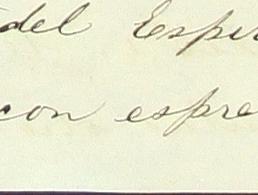 del Espir
con espre